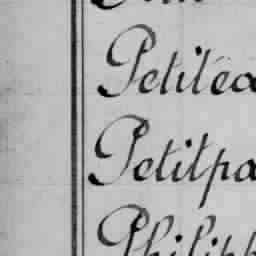 Petitea
Petitpa
Philipp